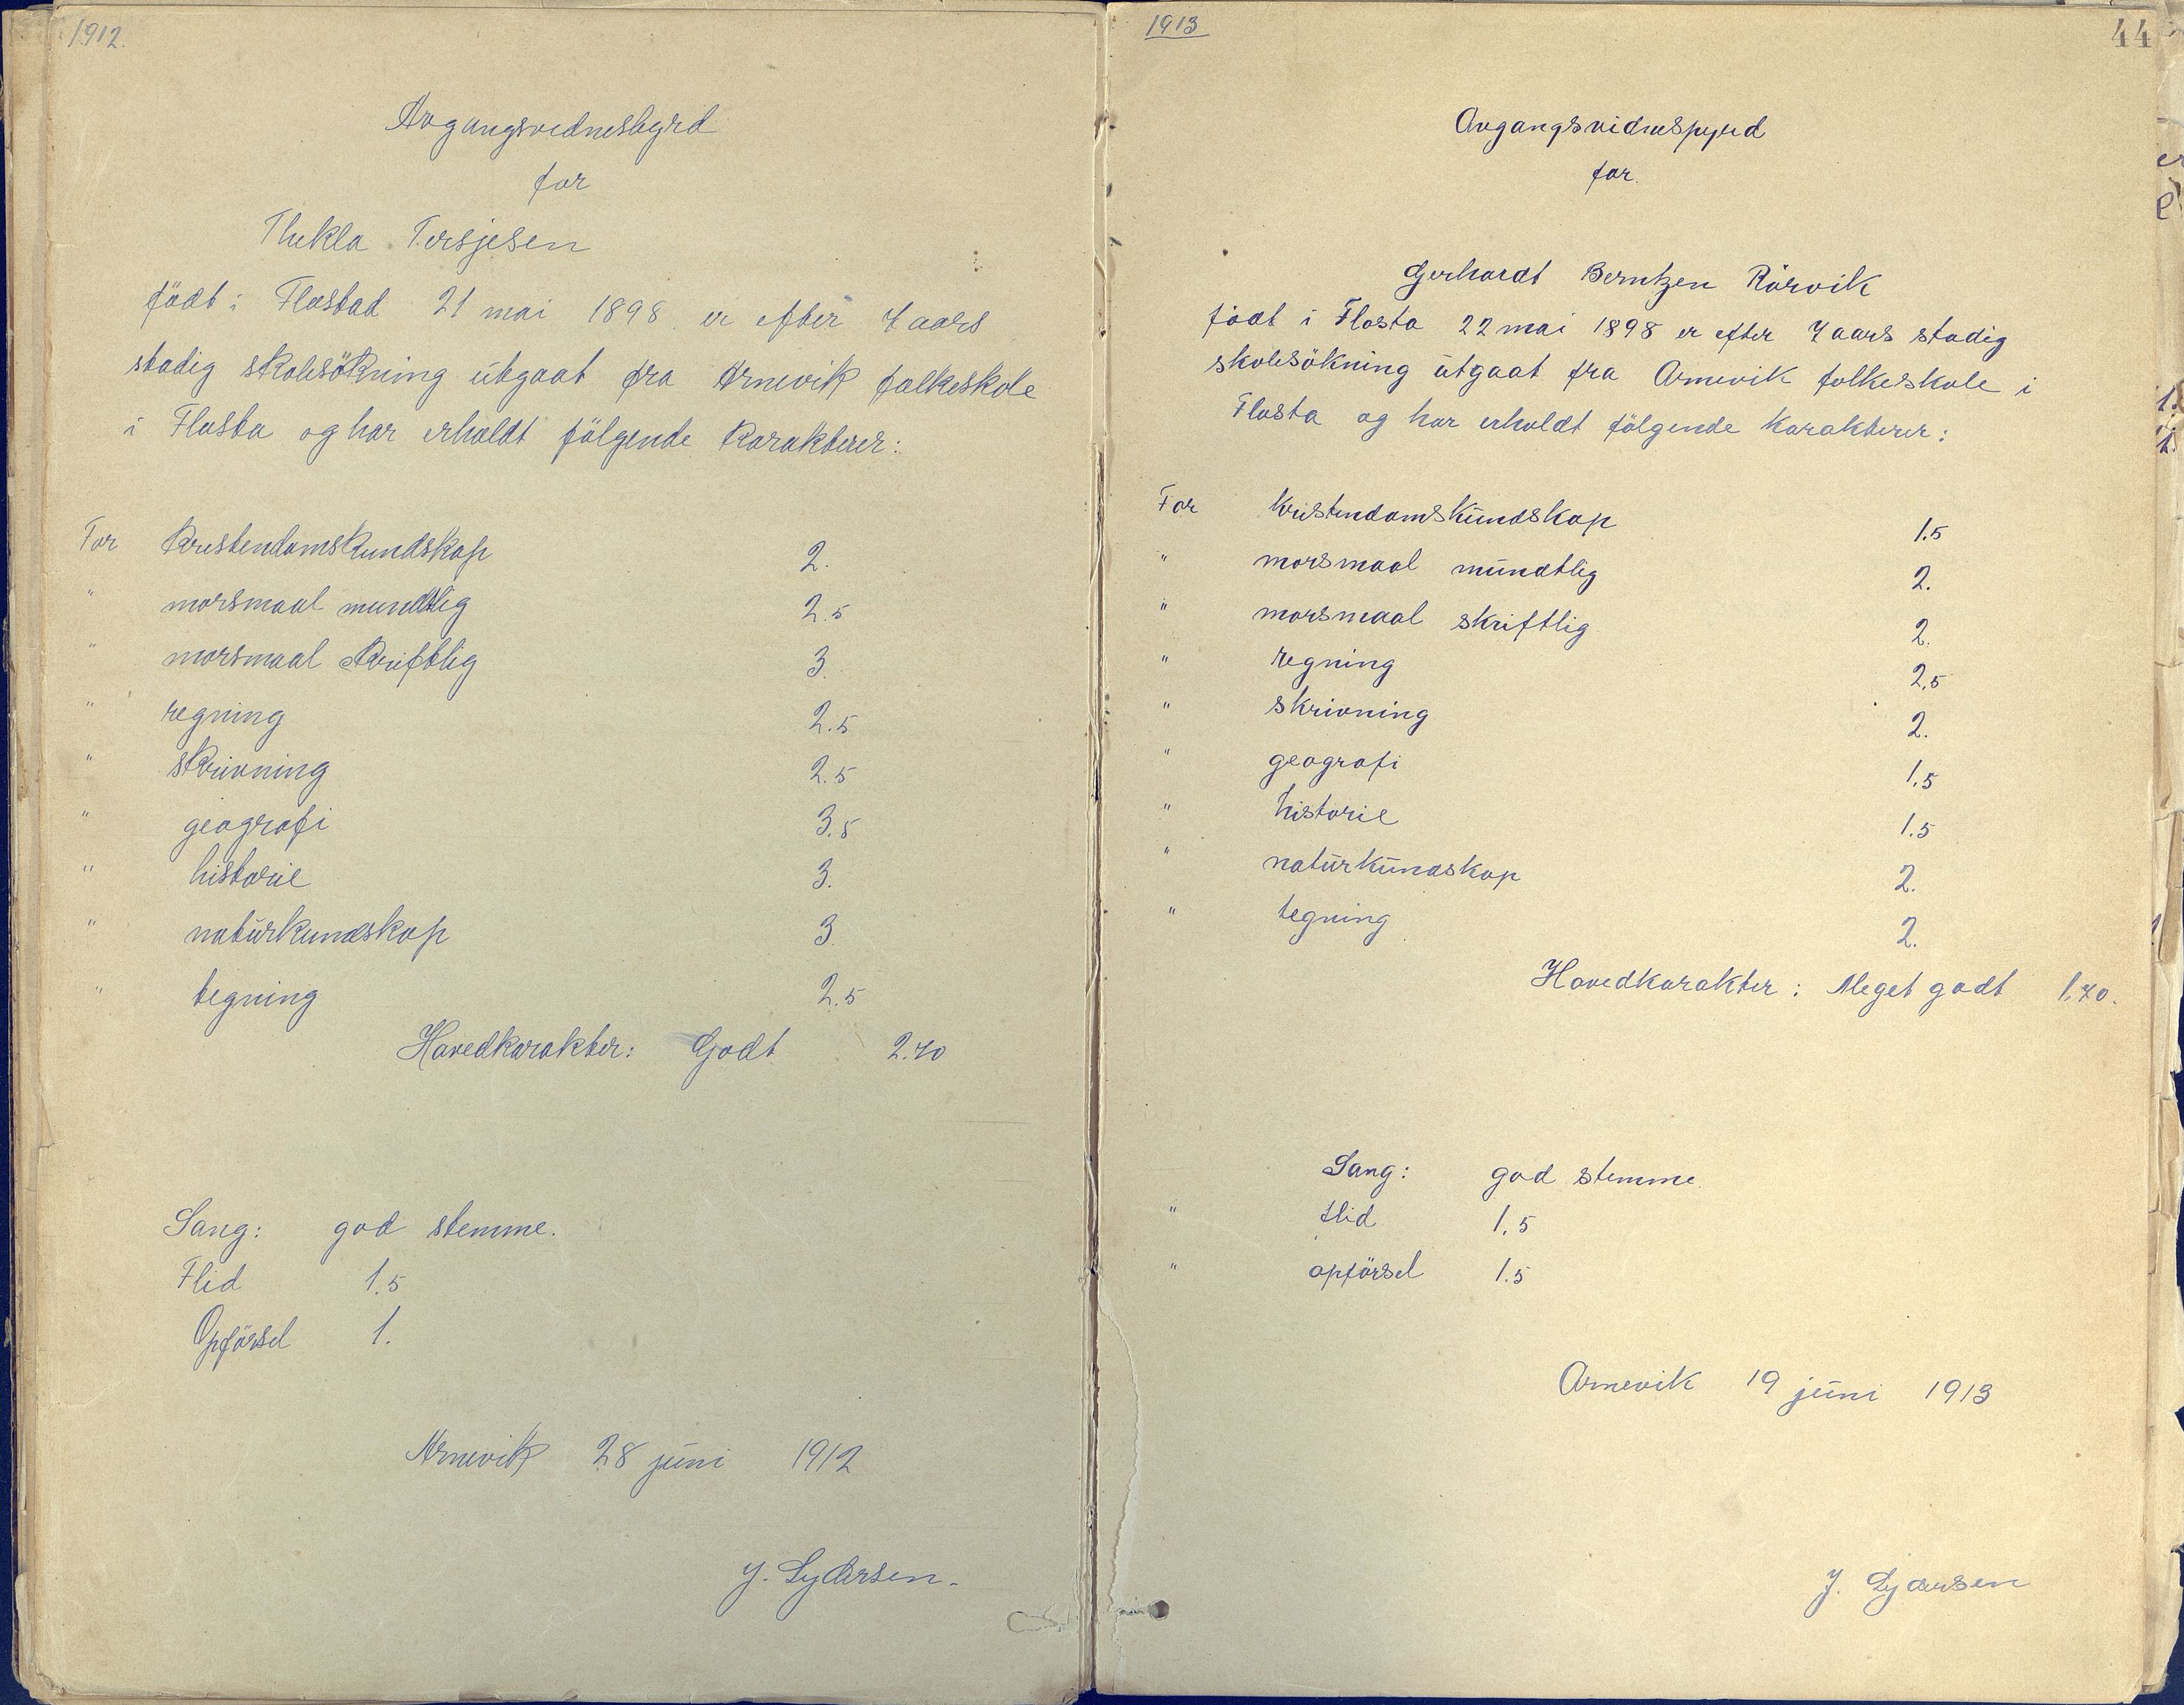 1912.
Avgangsvidnesbyrd
for
Thekla Tersjesen
född i Flostad 21 mai 1898 er efter 7 aars
stadig skolesökning utgaat fra Arnevik folkeskole
i Flosta og har erholdt fölgende karakterer:
For kristendomskundskap 2.
" morsmaal mundtlig 2.5
" morsmaal skriftlig 3.
" regning 2.5
" skrivning 2.5
" geografi 3.5
" historie 3.
" naturkundskap 3
" tegning 2.5
Hovedkarakter: Godt 2.70
Sang: god stemme.
Flid 1.5
Opförsel 1.
Arnevik 28 juni 1912
J. Lydersen.
1913
44
Avgangsvidnespyrd
for
Gerhardt Berntzen Rörvik
födt i Flosta 22 mai 1898 er efter 7 aars stadig
skolesökning utgaat fra Arnevik folkeskole i
Flosta og har erholdt fölgende karakterer:
For kristendomskundskap 1.5
" morsmaal mundtlig 2.
" morsmaal skriftlig 2.
" regning 2,5
" skrivning 2.
" geografi 1.5
" historie 1.5
" naturkundskap 2.
" tegning 2.
Hovedkarakter: Meget godt 1.70.
Sang: god stemme.
" flid 1.5
" opförsel 1.5
Arnevik 19 juni 1913
J. Lydersen